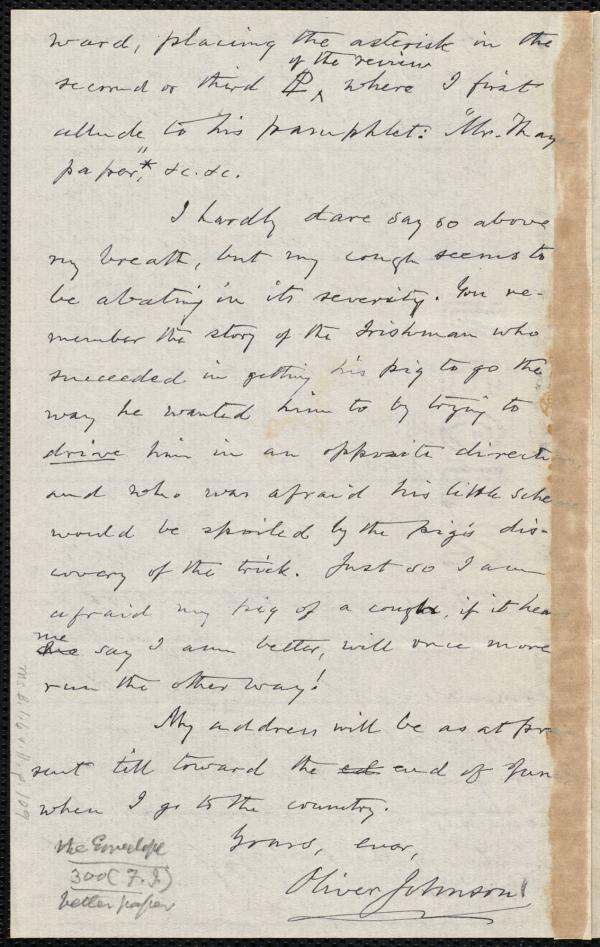 ward, placing the asterisk in the
of the review
second or third ⁋ ‸ where I first
allude to his pamphlet: "Mr. Thay
paper,"* &c. &c.
I hardly dare say so above
my breath, but my cough seems to
be abating in its severity. You re-
member the story of the Irishman who
succeeded in getting his pig to go the
way he wanted him to by trying to
drive him in an opposite directi
and who was afraid his little sche
would be spoiled by the pig's dis-
covery of the trick. Just so I am
afraid my pig of a cough, if it hea
me
say I am better, will once more
run the other way!
My address will be as at pre
sent till toward the ed end of Jun
when I go to the country.
Yours, ever,
Oliver Johnson
the Envelope
300 (F. J.)
better paper